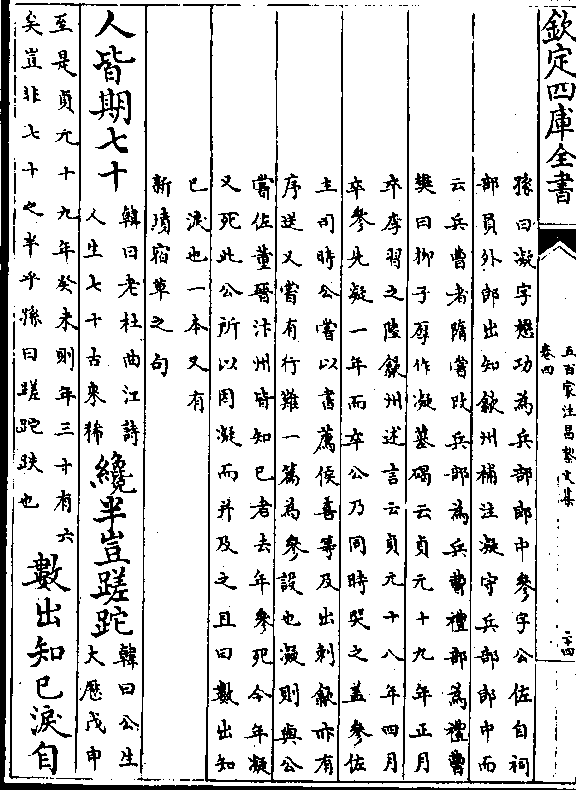 欽定四庫全書
五百家注昌黎文集
卷四
二十四
孫曰凝字懋功為兵部郎中參字公佐自祠
部員外郎出知歙州補注凝守兵部郎中而
云兵曹者隋嘗改兵部為兵曹禮部為禮曹
樊曰柳子厚作凝墓碣云貞元十九年正月
卒李習之陸歙州述言云貞元十八年四月
卒參先凝一年而卒公乃同時哭之蓋參佐
主司時公嘗以書薦侯喜等及出刺歙亦有
序送又嘗有行難一篇為參設也凝則與公
嘗佐董晉汴州皆知已者去年參死今年凝
又死此公所以因凝而并及之且曰數出知
已淚也一本又有
新墳宿草之句
人皆期七十
韓曰老杜曲江詩
人生七十古來稀
纔半豈蹉跎
韓曰公生
大歷戊申
至是貞元十九年癸未則年三十有六
矣豈非七十之半乎孫曰蹉跎跌也
數出知已淚自